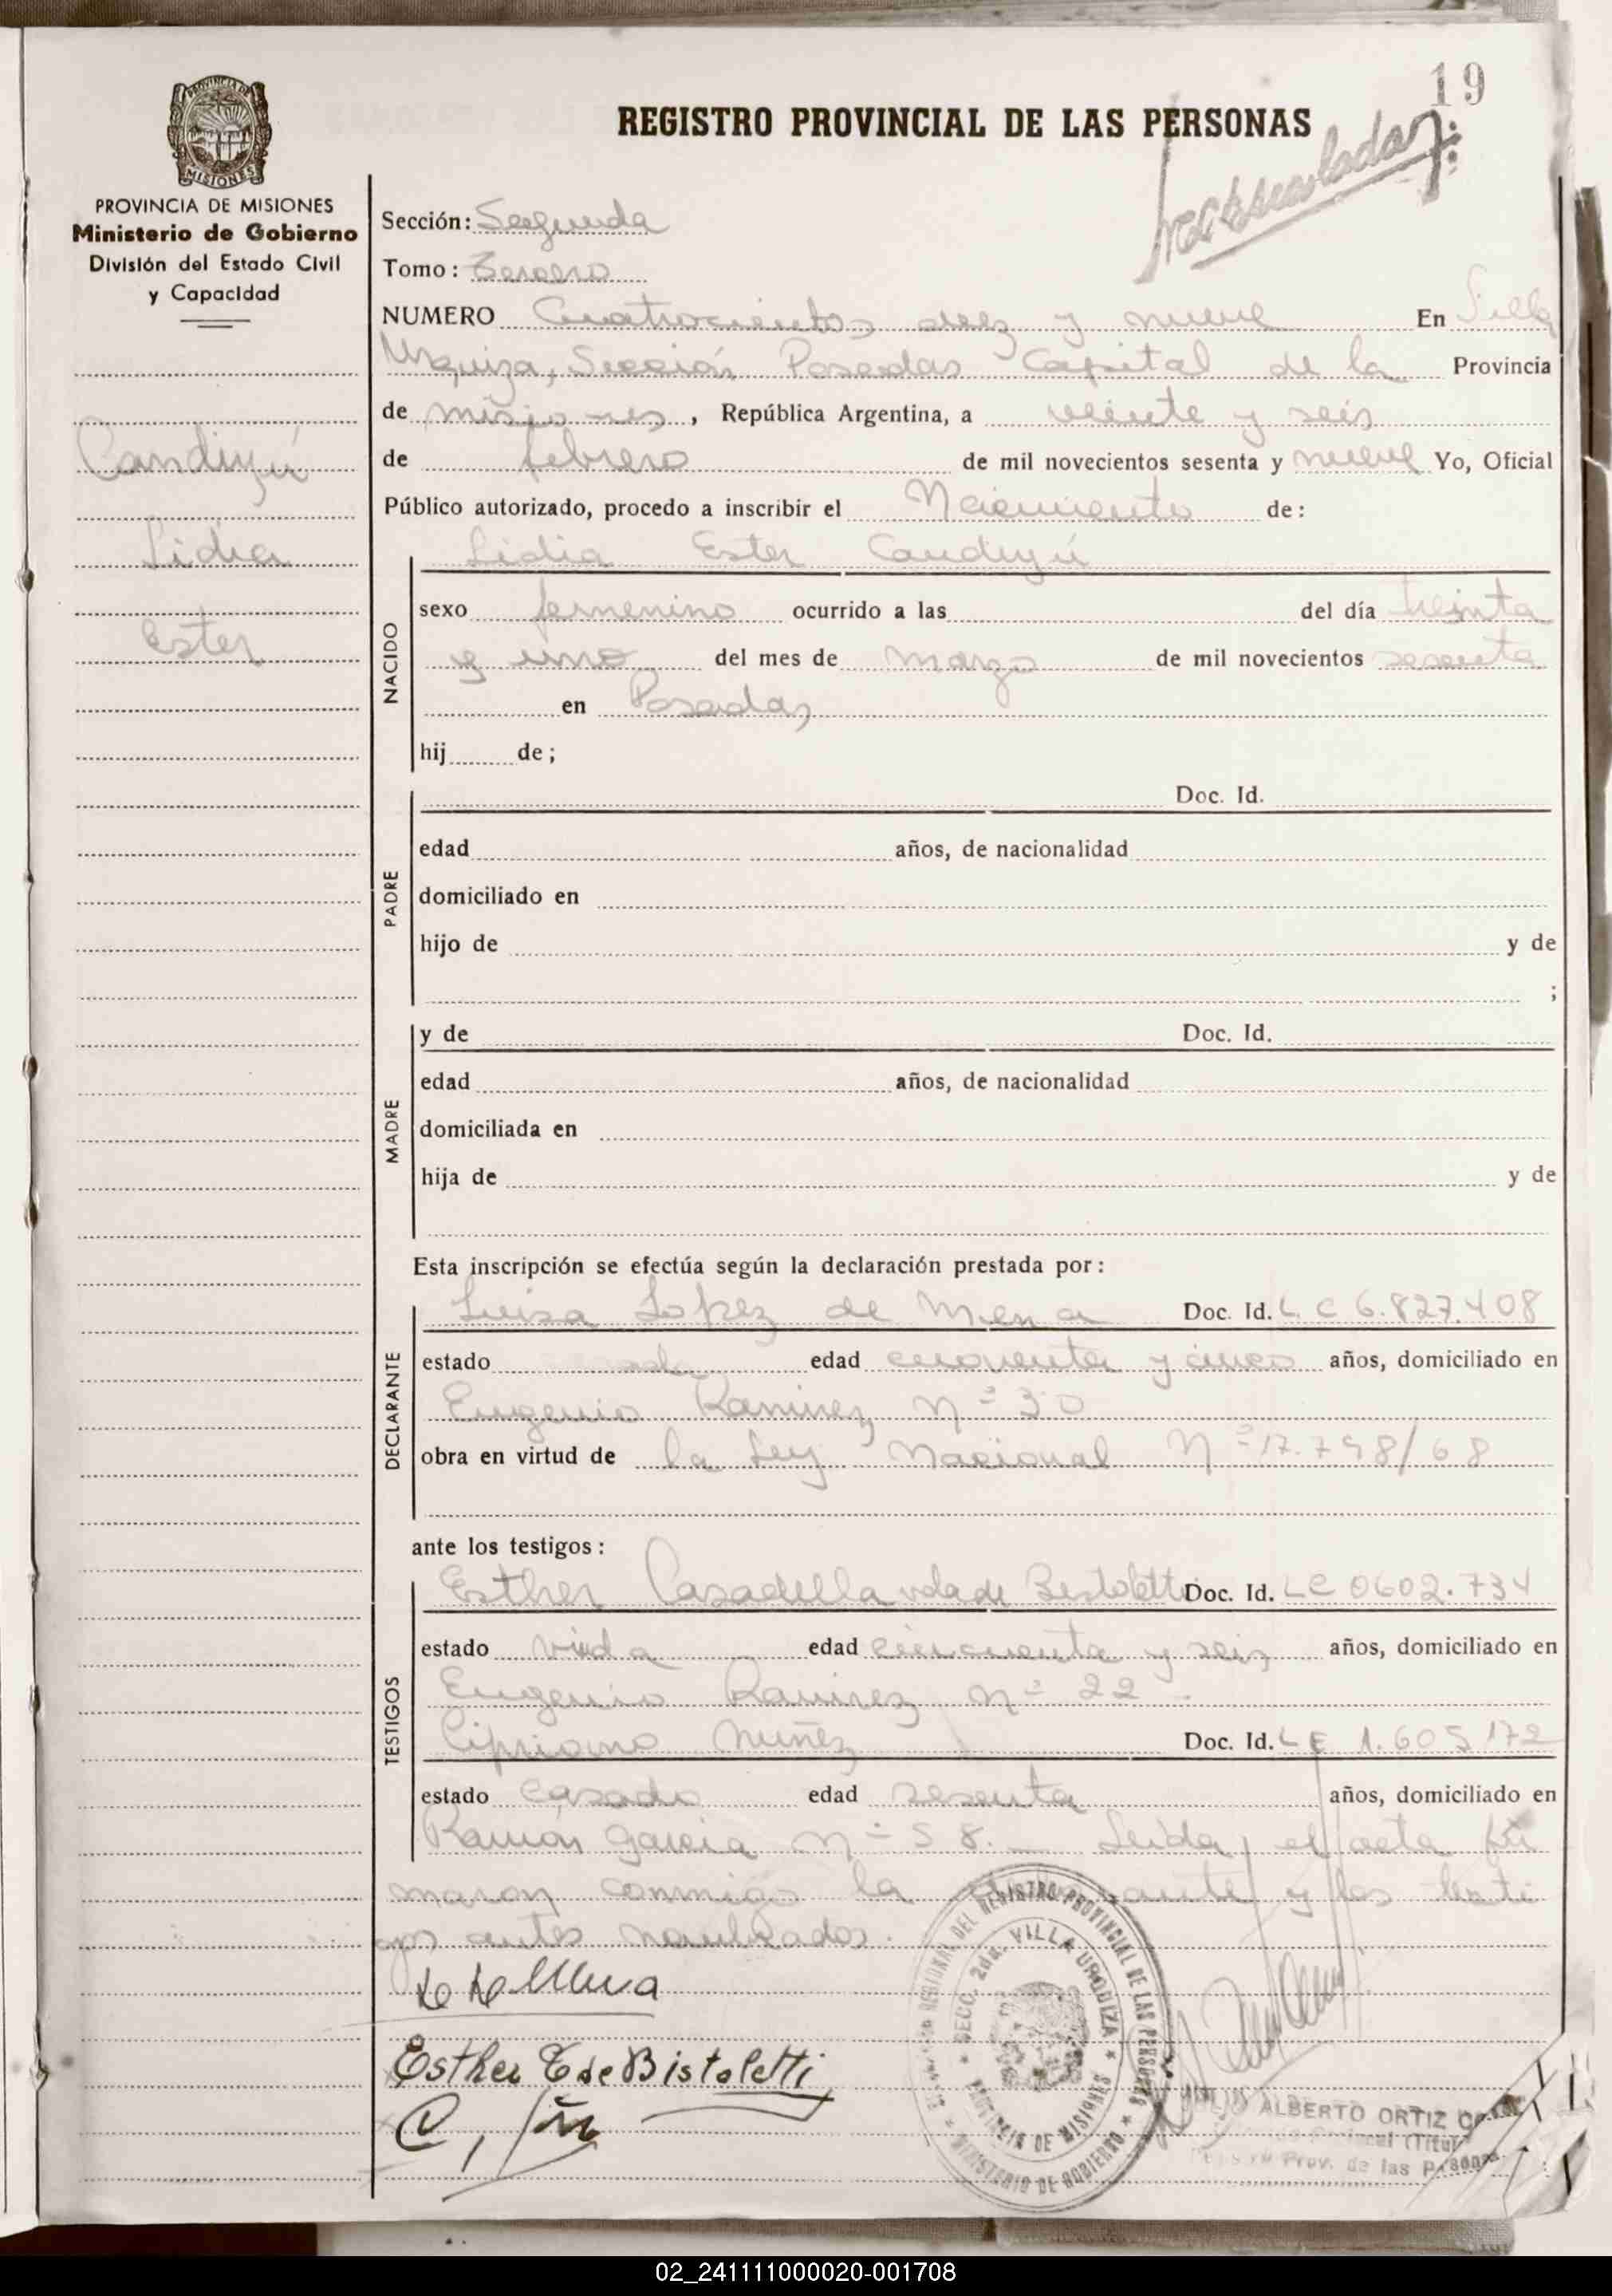 19
REGISTRO PROVINCIAL DE LAS PERSONAS
PROVINCIA DE MISIONES
Ministerio de Gobierno
División del Estado Civil
y Capacidad
Candiyú
Lidia
Ester
Sección: Segunda
Tomo: Tercero
NUMERO Cuatrocientos diez y nueve En Villa
Urquiza, Sección Posadas Capital de la Provincia
de misiones, República Argentina, a veinte y seis
de febrero de mil novecientos sesenta y nueve Yo, Oficial
Público autorizado, procedo a inscribir el Nacimiento de:
NACIDO
Lidia Ester Candiyú
sexo femenino ocurrido a las del día treinta
y uno del mes de marzo de mil novecientos sesenta
en Posadas
hij de;
PADRE
Doc. Id.
edad años, de nacionalidad
domiciliado en
hijo de y de
;
MADRE
y de Doc. Id.
edad años, de nacionalidad
domiciliada en
hija de y de
Esta inscripción se efectúa según la declaración prestada por:
DECLARANTE
Luisa Lopez de Mena Doc. Id. L C 6.827.408
estado edad cincuenta y cinco años, domiciliado en
Eugenio Ramirez Nº 30
obra en virtud de la Ley Nacional Nº 17.798/68
ante los testigos:
TESTIGOS
Esther Casadella vda de Bistoletti Doc. Id. LC 0602.734
estado viuda edad cincuenta y seis años, domiciliado en
Eugenio Ramirez nº 22.
Cipriano Nuñez Doc. Id. L E 1.605172
estado casado edad sesenta años, domiciliado en
Ramón Garcia nº 58. Leida el acta fir
maron conmigo la y los testi
gos antes nombrados.
L L de Mena
Esther C de Bistoletti
REGIONAL DEL REGISTRO PROVINCIAL DE LAS PERSONAS
SECC. 2da. VILLA URQUIZA
PROVINCIA DE MISIONES
MINISTERIO DE GOBIERNO
ALBERTO ORTIZ
(Titul
Prov. de las Personas
02_241111000020-001708